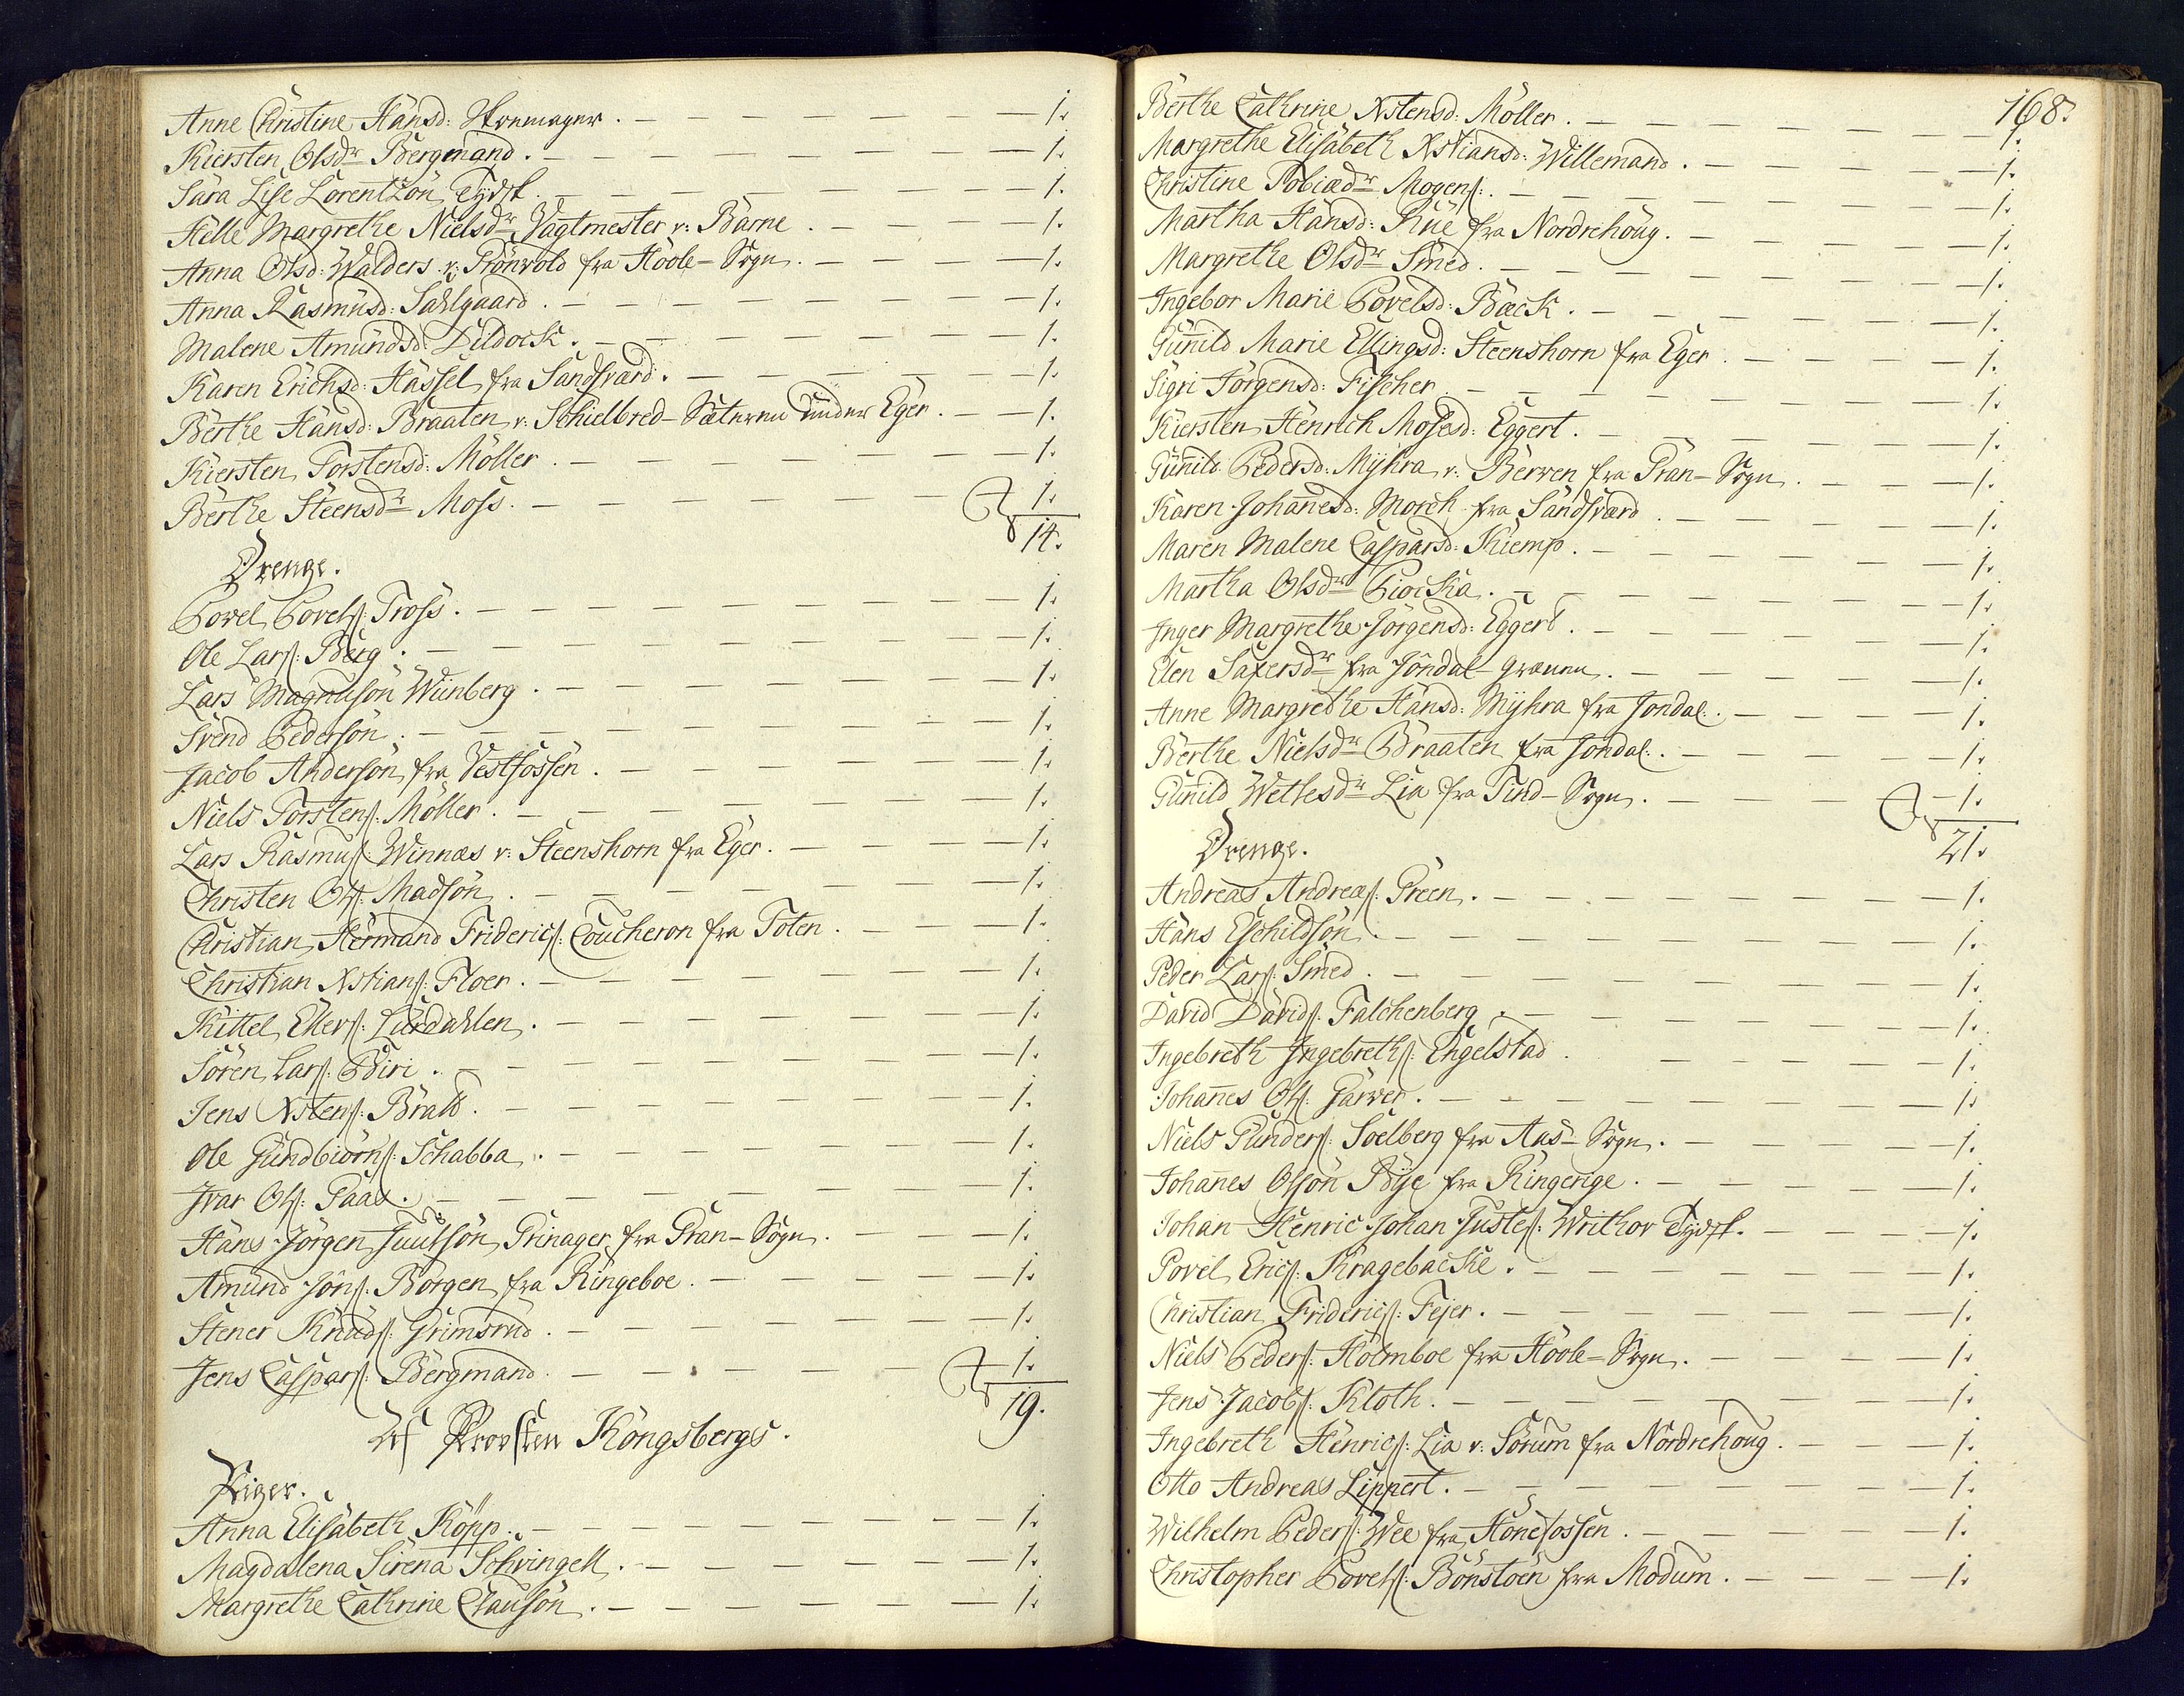 Anne Christine Hansd: Skomager. — 1.
Kiersten Olsdr Bergmand. — 1.
Sara Lise Lorentzön Tydsk. — 1.
Helle Margrethe Nielsdr Vagtmester v: Barne. — 1.
Anna Olsd: Walders v: Grönvold fra Hoole-Sogn. — 1.
Anna Rasmusd: Sahlgaard. — 1.
Malene Amundsd: Dildock. — 1.
Karen Erichsd: Hassel fra Sandsværd. — 1.
Berthe Hansd: Braaten v: Schielbred-Sæteren under Eger. — 1.
Kiersten Torstensd: Möller. — 1.
Berthe Steensdr Moss. — 1.
14.
Drenge.
Povel Povels: Tross. — 1.
Ole Lars: Berg. — 1.
Lars Magnusön Wiinberg. — 1.
Svend Pedersön. — 1.
Jacob Andersön fra Vestfossen. — 1.
Niels Torstens: Möller. — 1.
Lars Rasmus: Winnæs v: Steenshorn fra Eger. — 1.
Christen Ols: Madsön. — 1.
Christian Hermand Friderics: Coucheron fra Toten. — 1.
Christian Xstians: Floer. — 1.
Kittel Ellevs: Lurdahlen. — 1.
Sören Lars: Biri. — 1.
Jens Xstens: Bratt. — 1.
Ole Gundbiörns: Schabba. — 1.
Ivar Ols: Paas. — 1.
Hans Jörgen Juulsön Grinager fra Gran-Sogn. — 1.
Amund Jöns: Borgen fra Ringeboe. — 1.
Stener Knuds: Grimsrud. — 1.
Jens Caspars: Bergmand. — 1.
19.
Af Provsten Kongsbergs.
Piger.
Anna Elisabeth Köpp. — 1.
Magdalena Sirena Schvingell. — 1.
Margrethe Cathrine Clausön. — 1.
168.
Berthe Cathrine Xstensd: Möller. — 1.
Margrethe Elisabeth Xstiansd: Willemand. — 1.
Christine Tobiædr Mogens:. — 1.
Martha Hansd: Rue fra Nordrehoug. — 1.
Margrethe Olsdr Smed. — 1.
Ingebor Marie Povelsd: Bæck. — 1.
Gunild Marie Ellingsd: Steenshorn fra Eger. — 1.
Sigri Jörgensd: Fischer. — 1.
Kiersten Henrich Mosesd: Eggert. — 1.
Gunild Pedersd: Myhra v: Berven fra Gran-Sogn. — 1.
Karen Johannesd: Morch fra Sandsværd. — 1.
Maren Malene Caspard: Kiemp. — 1.
Martha Olsdr Piocka. — 1.
Inger Margrethe Jörgensd: Eggert. — 1.
Elen Saxersdr fra Jöndal-Grænen. — 1.
Anne Margrethe Hansd: Myhra fra Jondal. — 1.
Berthe Nielsdr Braaten fra Jondal. — 1.
Gunild Wetlesdr Lia fra Tind-Sogn. — 1.
21.
Drenge.
Andreas Andreæs: Green. — 1.
Hans Eschildsön. — 1.
Peder Lars: Smed. — 1.
David Davids: Falchenberg. — 1.
Ingebreth Ingebreths: Engelstad. — 1.
Johannes Ols: Garver. — 1.
Niels Gunders: Soelberg fra Aas-Sogn. — 1.
Johannes Olsön Bye fra Ringerige. — 1.
Johan Henric Johan Justes: Writhor Tydsk. — 1.
Povel Erics: Kragebacke. — 1.
Christian Friderics: Fejer. — 1.
Niels Peders: Holmboe fra Hoole-Sogn. — 1.
Jens Jacobs: Kloth. — 1.
Ingebreth Henrics: Lia v: Sörum fra Nordrehoug. — 1.
Otto Andreas Lippert. — 1.
Wilhelm Peders: Wee fra Hönefossen. — 1.
Christopher Povels: Bönstöen fra Modum. — 1.